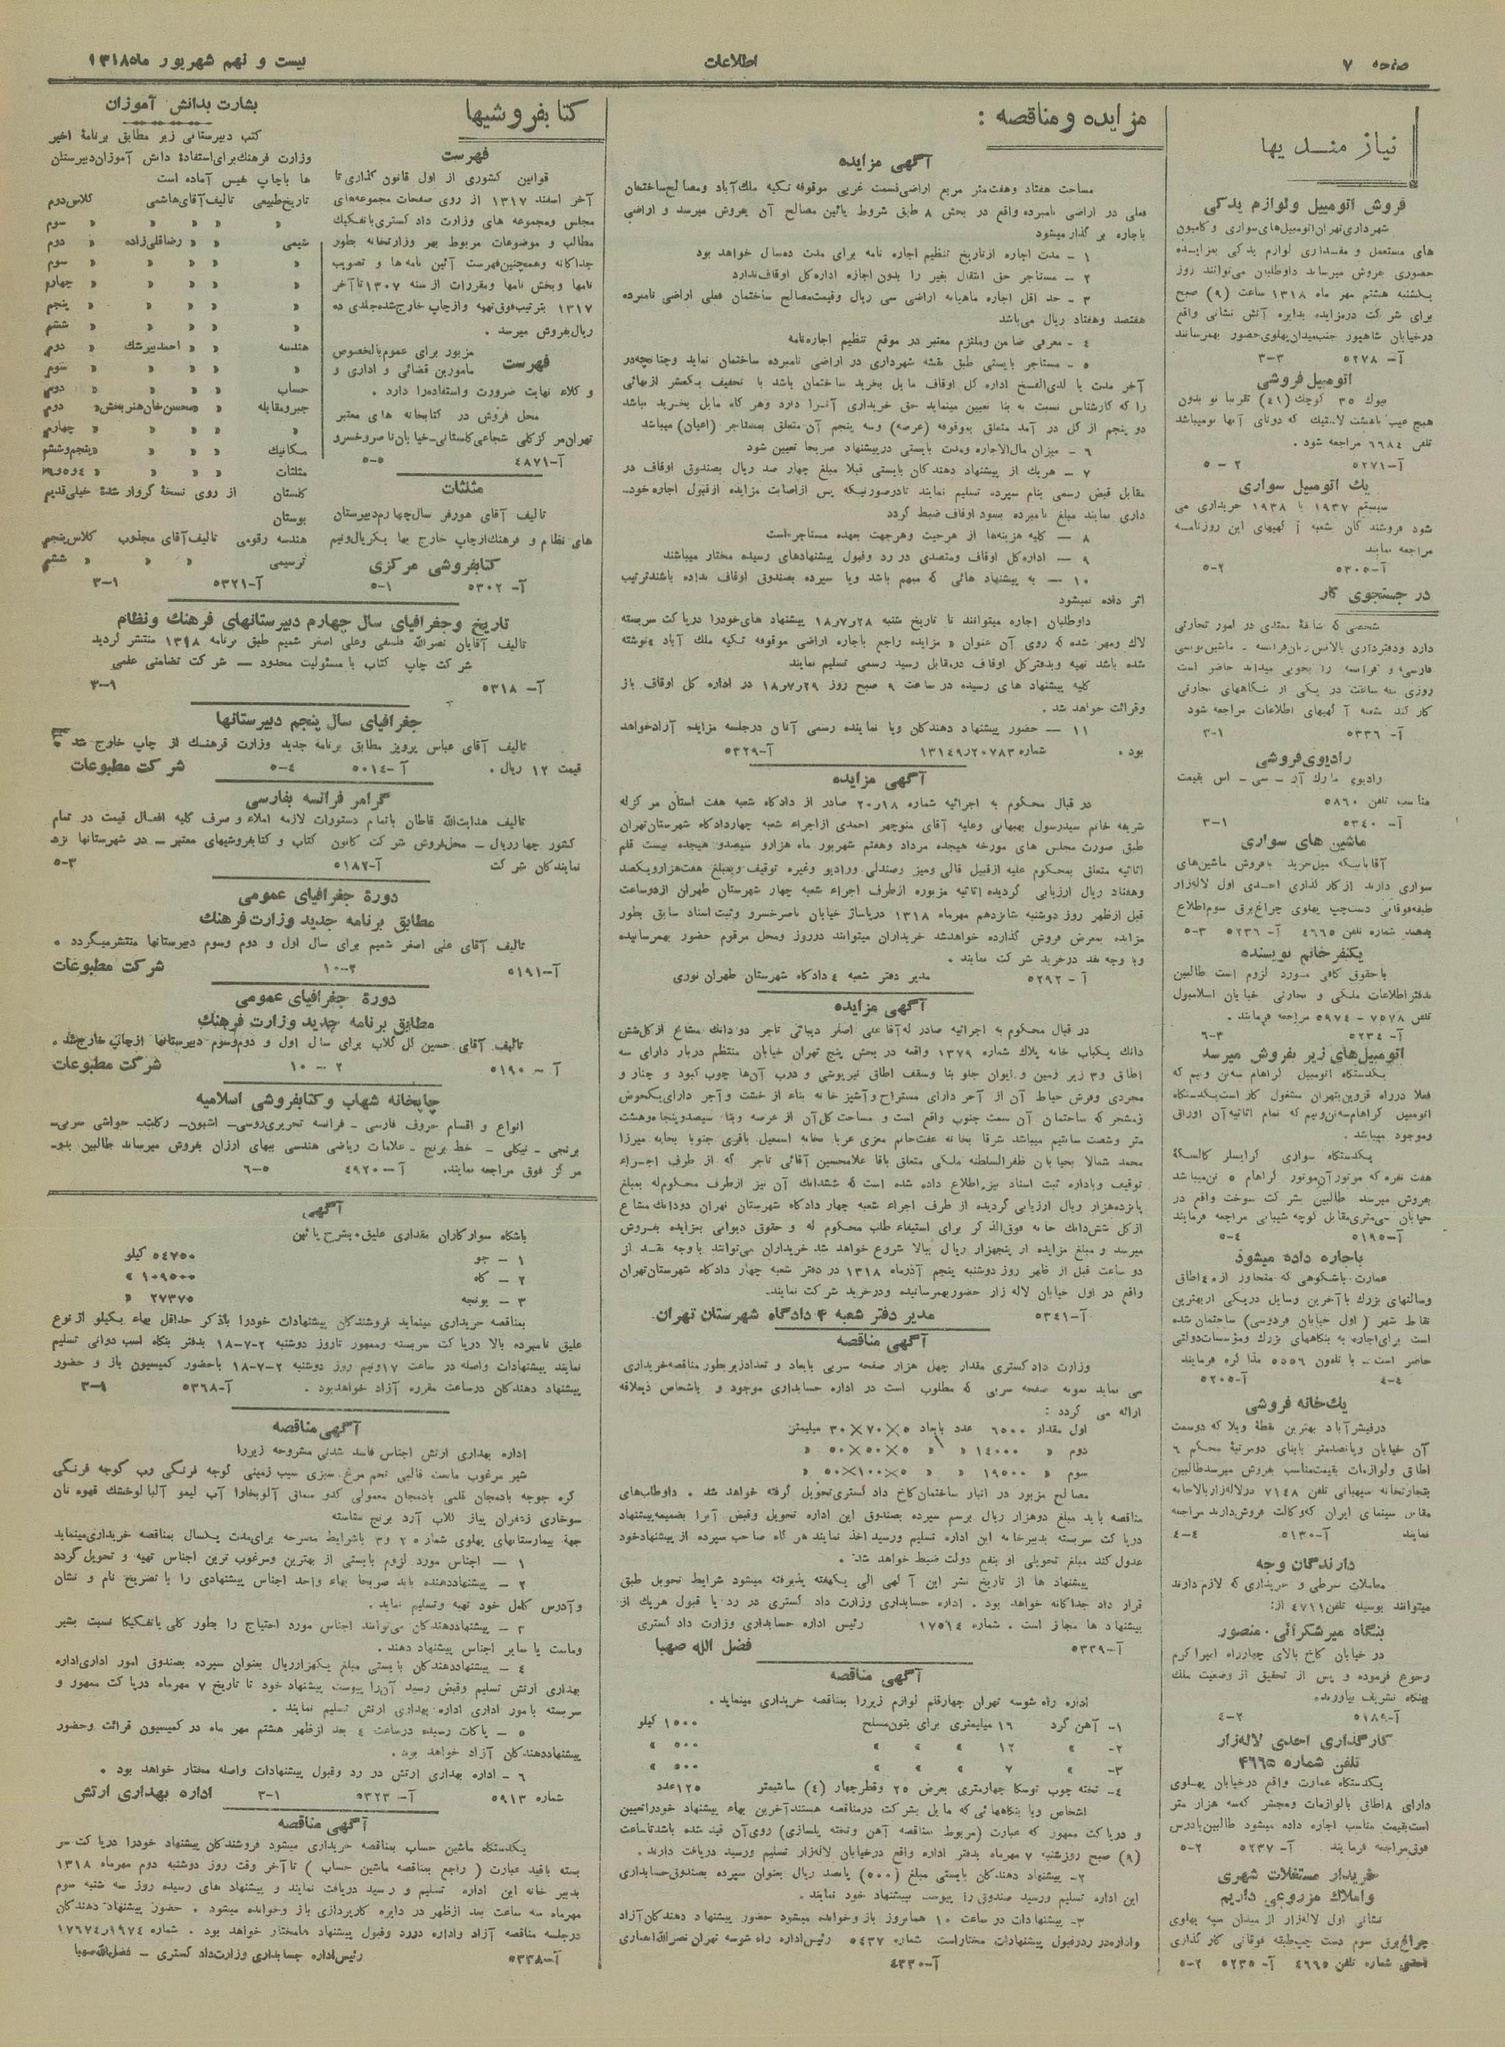 صفحه ۷
اطلاعات
بیست و نهم شهریور ماه ۱۳۱۸
نیازمندیها
فروش اتومبیل و لوازم یدکی
شهرداری تهران اتومبیل‌های سواری و کامیون
های مستعمل و مقداری لوازم یدکی بمزایده
حضوری بفروش میرساند داوطلبان می‌توانند روز
یکشنبه هشتم مهر ماه ۱۳۱۸ ساعت (۹) صبح
برای شرکت در مزایده بدایره آتش نشانی واقع
در خیابان شاهپور جنب میدان پهلوی حضور بهمرسانند
آ- ۵۲۷۸ ۳-۳
اتومبیل فروشی
بیوك ۳۵ کوچك (۴۱) تقریبا نو بدون
هیچ عیب با هشت لاستیك که دوتای آنها نو میباشد
تلفن ۶۶۸۴ مراجعه شود .
آ-۵۲۷۱ ۲-۵
یك اتومبیل سواری
سیستم ۱۹۳۷ یا ۱۹۳۸ خریداری می
شود فروشندگان بشعبه آگهیهای این روزنامه
مراجعه نمایند
آ-۵۳۰۵ ۲-۵
در جستجوی کار
شخصی که سابقهٔ ممتدی در امور تجارتی
دارد و دفترداری بالانس زبان فرانسه - ماشین نویسی
فارسی و فرانسه را بخوبی میداند حاضر است
روزی سه ساعت در یکی از بنگاههای تجارتی
کار کند بشعبه آگهیهای اطلاعات مراجعه شود
آ- ۵۳۳۶ ۱-۳
رادیوی فروشی
رادیوی مارك آر - سی - اس بقیمت
مناسب تلفن ۵۸۶۰
آ- ۵۳۴۰ ۱-۳
ماشین های سواری
آقایانیکه میل خرید یا فروش ماشین‌های
سواری دارند از کارگذاری احمدی اول لاله‌زار
طبقه فوقانی دست چپ پهلوی چراغ برق سوم اطلاع
بدهند شماره تلفن ۴۶۶۵ آ- ۵۲۳۶ ۳-۵
یکنفر خانم نویسنده
با حقوق کافی مورد لزوم است طالبین
بدفتر اطلاعات ملکی و تجارتی خیابان اسلامبول
تلفن ۷۵۷۸ - ۵۹۷۴ مراجعه فرمایند .
آ-۵۲۳۴ ۳-۶
اتومبیل‌های زیر بفروش میرسد
یکدستگاه اتومبیل گراهام سه تن و نیم که
فعلا در راه قزوین بتهران مشغول کار است یکدستگاه
اتومبیل گراهام سه تن و نیم که تمام اثاثیه آن اوراق
و موجود میباشد .
یکدستگاه سواری کرایسلر کالسکهٔ
هفت نفره که موتور آن موتور گراهام ۵ تن میباشد
بفروش میرسد طالبین بشرکت سوخت واقع در
خیابان سی متری مقابل کوچه شیبانی مراجعه فرمایند
آ-۵۱۹۵ ۴-۵
باجاره داده میشود
عمارت باشکوهی که متجاوز از ۴۰ اطاق
و سالنهای بزرك با آخرین وسایل در یکی از بهترین
نقاط شهر ( اول خیابان فردوسی ) ساختمان شده
است برای اجاره به بنگاههای بزرك و مؤسسات دولتی
حاضر است - با تلفون ۵۵۵۶ مذاکره فرمایند
۴-۴ آ-۵۲۰۵
یك خانه فروشی
در فیشرآباد بهترین نقطهٔ ویلا که دوسمت
آن خیابان و پانصد متر بابنای دو مرتبهٔ محکم ۶
اطاق و لوازمات بقیمت مناسب بفروش میرسد طالبین
بتجارتخانه سپهبانی تلفن ۷۱۴۸ در لاله‌زار بالاخانه
مقابل سینمای ایران که وکالت فروش دارند مراجعه
نمایند آ-۵۱۳۰ ۴-۴
دارندگان وجه
معاملات شرطی و خریداری که لازم دارند
میتوانند بوسیله تلفن ۴۷۱۱ از:
بنگاه میرشکرائی - منصور
در خیابان کاخ بالای چهارراه امیراکرم
رجوع فرموده و پس از تحقیق از وضعیت ملك
ببنگاه تشریف بیاورند.
آ-۵۱۸۹ ۲-۴
کارگذاری احمدی لاله‌زار
تلفن شماره ۴۶۶۵
یکدستگاه عمارت واقع در خیابان پهلوی
دارای ۸ اطاق با لوازمات و محشر که سه هزار متر
است بقیمت مناسب اجاره داده میشود طالبین بادرس
فوق مراجعه فرمایند آ- ۵۲۳۷ ۲-۵
خریدار مستغلات شهری
و املاك مزروعی داریم
نشانی اول لاله‌زار از میدان سپه پهلوی
چراغ برق سوم دست چپ طبقه فوقانی کارگذاری
احمدی شماره تلفن ۴۶۶۵ آ- ۵۲۳۵ ۲-۵
مزایده و مناقصه :
آگهی مزایده
مساحت هفتاد و هفت متر مربع اراضی قسمت غربی موقوفه تکیه ملك‌آباد و مصالح ساختمان
فعلی در اراضی نامبرده واقع در بخش ۸ طبق شروط پائین مصالح آن بفروش میرسد و اراضی
باجاره برگذار میشود
۱ - مدت اجاره از تاریخ تنظیم اجاره نامه برای مدت ده سال خواهد بود
۲ - مستاجر حق انتقال بغیر را بدون اجازه اداره کل اوقاف ندارد
۳ - حد اقل اجاره ماهیانه اراضی سی ریال و قیمت مصالح ساختمان فعلی اراضی نامبرده
هفتصد و هفتاد ریال می‌باشد
۴ - معرفی ضامن و ملتزم معتبر در موقع تنظیم اجاره نامه
۵ - مستاجر بایستی طبق نقشه شهرداری در اراضی نامبرده ساختمان نماید و چنانچه در
آخر مدت یا لدی‌الفسخ اداره کل اوقاف مایل بخرید ساختمان باشد با تخفیف یکعشر از بهائی
را که کارشناس نسبت به بنا تعیین مینماید حق خریداری آنرا دارد و هر گاه مایل بخرید نباشد
دو پنجم از کل در آمد متعلق بموقوفه (عرصه) و سه پنجم آن متعلق بمستاجر (اعیان) میباشد
۶ - میزان مال‌الاجاره و مدت بایستی در پیشنهاد صریحا تعیین شود
۷ - هریك از پیشنهاد دهندگان بایستی قبلا مبلغ چهار صد ریال بصندوق اوقاف در
مقابل قبض رسمی بنام سپرده تسلیم نمایند تا در صورتیکه پس از اصابت مزایده از قبول اجاره خود-
داری نمایند مبلغ نامبرده بسود اوقاف ضبط گردد
۸ - کلیه هزینه‌ها از هرحیث و هرجهت بعهده مستاجر است
۹ - اداره کل اوقاف و متصدی در رد و قبول پیشنهادهای رسیده مختار میباشند
۱۰ - به پیشنهاد هائی که مبهم باشد و یا سپرده بصندوق اوقاف نداده باشند ترتیب
اثر داده نمیشود
داوطلبان اجاره میتوانند تا تاریخ شنبه ۲۸ر۷ر۱۸ پیشنهاد های خود را در پاکت سربسته
لاك و مهر شده که روی آن عنوان « مزایده راجع باجاره اراضی موقوفه تکیه ملك آباد » نوشته
شده باشد تهیه و بدفتر کل اوقاف در مقابل رسید رسمی تسلیم نمایند
کلیه پیشنهاد های رسیده در ساعت ۹ صبح روز ۲۹ر۷ر۱۸ در اداره کل اوقاف باز
و قرائت خواهد شد .
۱۱ - حضور پیشنهاد دهندگان و یا نماینده رسمی آنان در جلسه مزایده آزاد خواهد
بود . شماره ۱۳۱۴۹ر۲۰۷۸۳ آ-۵۳۲۹
آگهی مزایده
در قبال محکوم به اجرائیه شماره ۱۸ر۲۰ صادر از دادگاه شعبه هفت استان مرکز له
شریفه خانم سیدرسول بهبهانی و علیه آقای منوچهر احمدی از اجراء شعبه چهار دادگاه شهرستان تهران
طبق صورت مجلس های مورخه هیجده مرداد و هفتم شهریور ماه هزار و سیصد و هیجده بیست قلم
اثاثیه متعلق بمحکوم علیه از قبیل قالی و میز و صندلی و رادیو و غیره توقیف و بمبلغ هفت هزار و یکصد
و هفتاد ریال ارزیابی گردیده اثاثیه مزبوره از طرف اجراء شعبه چهار شهرستان طهران از دو ساعت
قبل از ظهر روز دوشنبه شانزدهم مهرماه ۱۳۱۸ در پاساژ خیابان ناصرخسرو و ثبت اسناد سابق بطور
مزایده بمعرض فروش گذارده خواهد شد خریداران میتوانند در روز و محل مرقوم حضور بهمرسانیده
و با وجه نقد در خرید شرکت نمایند .
آ - ۵۲۹۲ مدیر دفتر شعبه ۴ دادگاه شهرستان طهران نوری
آگهی مزایده
در قبال محکوم به اجرائیه صادر له آقا علی اصغر دیبائی تاجر دو دانك مشاع از کل شش
دانك یکباب خانه پلاك شماره ۱۳۷۹ واقعه در بخش پنج تهران خیابان منتظم دربار دارای سه
اطاق و ۳ زیر زمین و ایوان جلو بنا و سقف اطاق تیرپوشی و درب آنها چوب کبود و چنار و
مجردی و فرش حیاط آن از آجر دارای مستراح و آشپز خانه بناء از خشت و آجر دارای یکحوض
زمشجر که ساختمان آن سمت جنوب واقع است و مساحت کل آن از عرصه و بنا سیصد و پنجاه و هشت
متر و شصت سانتیم میباشد شرقا بخانه عفت خانم معزی غربا بخانه اسمعیل باقری جنوبا بخانه میرزا
محمد شمالا بخیابان ظفرالسلطنه ملکی متعلق باقا غلامحسین آقائی تاجر که از طرف اجراء
توقیف و باداره ثبت اسناد نیز اطلاع داده شده است که ششدانك آن نیز از طرف محکوم له بمبلغ
پانزده هزار ریال ارزیابی گردیده از طرف اجراء شعبه چهار دادگاه شهرستان تهران دو دانك مشاع
از کل شش دانك خانه فوق‌الذکر برای استیفاء طلب محکوم له و حقوق دیوانی بمزایده بفروش
میرسد و مبلغ مزایده از پنجهزار ریال ببالا شروع خواهد شد خریداران می‌توانند با وجه نقد از
دو ساعت قبل از ظهر روز دوشنبه پنجم آذرماه ۱۳۱۸ در دفتر شعبه چهار دادگاه شهرستان تهران
واقع در اول خیابان لاله زار حضور بهمرسانیده و در خرید شرکت نمایند.
آ-۵۳۴۱ مدیر دفتر شعبه ۴ دادگاه شهرستان تهران.
آگهی مناقصه
وزارت دادگستری مقدار چهل هزار صفحه سربی بابعاد و تعداد زیر بطور مناقصه خریداری
می نماید نمونه صفحه سربی که مطلوب است در اداره حسابداری موجود و باشخاص ذیعلاقه
ارائه می گردد :
اول مقدار ۶۵۰۰ عدد بابعاد ۵×۷۰×۳۰ میلیمتر
دوم « ۱۴۰۰۰ « « ۵×۵۰×۵۰ «
سوم « ۱۹۵۰۰ « « ۵×۱۰۰×۵۰ «
مصالح مزبور در انبار ساختمان کاخ دادگستری تحویل گرفته خواهد شد . داوطلب‌های
مناقصه باید مبلغ دو هزار ریال برسم سپرده بصندوق این اداره تحویل و قبض آنرا بضمیمه پیشنهاد
در پاکت سربسته بدبیرخانه این اداره تسلیم و رسید اخذ نمایند هر گاه صاحب سپرده از پیشنهاد خود
عدول کند مبلغ تحویلی او بنفع دولت ضبط خواهد شد.
پیشنهاد ها از تاریخ نشر این آگهی الی یکهفته پذیرفته میشود شرایط تحویل طبق
قرار داد جداگانه خواهد بود . اداره حسابداری وزارت دادگستری در رد یا قبول هریك از
پیشنهاد ها مجاز است . شماره ۱۷۵۱۴ رئیس اداره حسابداری وزارت دادگستری
آ-۵۳۳۹ فضل الله صهبا
آگهی مناقصه
اداره راه شوسه تهران چهارقلم لوازم زیر را بمناقصه خریداری مینماید .
۱- آهن گرد ۱۶ میلیمتری برای بتون مسلح ۱۰۰۰ کیلو
۲- « ۱۲ « « « ۵۰۰ «
۳- « ۷ « « « ۵۰۰ «
۴- تخته چوب توسکا چهارمتری بعرض ۲۵ و قطر چهار (۴) سانتیمتر ۱۲۵ عدد
اشخاص و یا بنگاههائی که مایل بشرکت در مناقصه هستند آخرین بهاء پیشنهاد خود را تعیین
و در پاکت ممهور که عبارت (مربوط بمناقصه آهن و تخته پلسازی) روی آن قید شده باشد تا ساعت
(۹) صبح روز شنبه ۷ مهرماه بدفتر اداره واقع در خیابان لاله‌زار تسلیم و رسید دریافت دارند .
۲- پیشنهاد دهندگان بایستی مبلغ (۵۰۰) پانصد ریال بعنوان سپرده بصندوق حسابداری
این اداره تسلیم و رسید صندوق را پیوست پیشنهاد خود نمایند .
۳- پیشنهادات در ساعت ۱۰ همانروز باز و خوانده میشود حضور پیشنهاد دهندگان آزاد
و اداره در رد و قبول پیشنهادات مختار است شماره ۵۴۳۷ رئیس اداره راه شوسه تهران نصرالله انصاری
آ-۴۳۳۰
کتابفروشیها
فهرست
قوانین کشوری از اول قانون گذاری تا
آخر اسفند ۱۳۱۷ از روی صفحات مجموعه‌های
مجلس و مجموعه های وزارت دادگستری با تفکیك
مطالب و موضوعات مربوط بهر وزارتخانه بطور
جداگانه و همچنین فهرست آئین نامه‌ها و تصویب
نامها و بخش نامها و مقررات از سنه ۱۳۰۷ تا آخر
۱۳۱۷ بترتیب فوق تهیه و از چاپ خارج شده جلدی ده
ریال بفروش میرسد .
فهرست مزبور برای عموم بالخصوص
مامورین قضائی و اداری و
وکلاء نهایت ضرورت و استفاده را دارد .
محل فروش در کتابخانه های معتبر
تهران مرکز کلی شجاعی گلستانی - خیابان ناصرخسرو
آ-۴۸۷۱ ۵-۵
مثلثات
تالیف آقای هورفر سال چهارم دبیرستان
های نظام و فرهنك از چاپ خارج بها یکریال و نیم
کتابفروشی مرکزی
آ- ۵۳۰۲ ۱-۵
بشارت بدانش آموزان
کتب دبیرستانی زیر مطابق برنامهٔ اخیر
وزارت فرهنك برای استفادهٔ دانش آموزان دبیرستان
ها با چاپ نفیس آماده است
تاریخ طبیعی تالیف آقای هاشمی کلاس دوم
« « « « سوم
شیمی « « رضاقلی‌زاده « دوم
« « « « سوم
« « « « چهارم
« « « « پنجم
« « « « ششم
هندسه « « احمد بیرشك « دوم
« « « « سوم
حساب « « « دوم
جبر و مقابله « « محسن خان هنربخش « دوم
« « « « چهارم
مکانیك « « « پنجم و ششم
مثلثات « « « ۴ و ۵ و ۶
گلستان از روی نسخهٔ گراور شدهٔ خیلی قدیم
بوستان
هندسه رقومی تالیف آقای مجذوب کلاس پنجم
ترسیمی « « « ششم
آ-۵۳۲۱ ۱-۳
تاریخ و جغرافیای سال چهارم دبیرستانهای فرهنك و نظام
تالیف آقایان نصرالله فلسفی و علی اصغر شمیم طبق برنامه ۱۳۱۸ منتشر گردید
شرکت چاپ کتاب با مسئولیت محدود - شرکت تضامنی علمی
آ- ۵۳۱۸ ۱-۳
جغرافیای سال پنجم دبیرستانها
تالیف آقای عباس پرویز مطابق برنامهٔ جدید وزارت فرهنك از چاپ خارج شد
قیمت ۱۲ ریال . آ-۵۰۱۴ ۴-۵ شرکت مطبوعات
گرامر فرانسه بفارسی
تالیف هدایت‌الله قاطان با تمام دستورات لازمه املاء و صرف کلیه افعال قیمت در تمام
کشور چهار ریال - محل فروش شرکت کانون کتاب و کتابفروشیهای معتبر - در شهرستانها نزد
نمایندگان شرکت آ-۵۱۸۲ ۳-۵
دورهٔ جغرافیای عمومی
مطابق برنامه جدید وزارت فرهنك
تالیف آقای علی اصغر شمیم برای سال اول و دوم و سوم دبیرستانها منتشر میگردد .
آ-۵۱۹۱ ۲-۱۰ شرکت مطبوعات
دورهٔ جغرافیای عمومی
مطابق برنامه جدید وزارت فرهنك
تالیف آقای حسین گل گلاب برای سال اول و دوم و سوم دبیرستانها از چاپ خارج شد .
آ- ۵۱۹۰ ۲-۱۰ شرکت مطبوعات
چاپخانه شهاب و کتابفروشی اسلامیه
انواع و اقسام حروف فارسی - فرانسه تحریری روسی - اشپون - رگلت حواشی سربی-
برنجی - نیکلی - خط برنج - علامات ریاضی هندسی ببهای ارزان بفروش میرساند طالبین بدو-
مرکز فوق مراجعه نمایند. آ-۴۹۲۰ ۵-۶
آگهی
باشگاه سوار کاران مقداری علیق بشرح پائین
۱ - جو ۵۴۷۵۰ کیلو
۲ - کاه ۱۰۹۵۰۰ «
۳ - یونجه ۲۷۳۷۵ «
بمناقصه خریداری مینماید فروشندگان پیشنهادات خود را با ذکر حداقل بهاء یکیلو از نوع
علیق نامبرده بالا در پاکت سربسته و ممهور تا روز دوشنبه ۲-۷-۱۸ بدفتر بنگاه اسب دوانی تسلیم
نمایند پیشنهادات واصله در ساعت ۱۷ و نیم روز دوشنبه ۲-۷-۱۸ با حضور کمیسیون باز و حضور
پیشنهاد دهندگان در ساعت مقرره آزاد خواهد بود . آ-۵۳۶۸ ۱-۳
آگهی مناقصه
اداره بهداری ارتش اجناس فاسد شدنی مشروحه زیر را
شیر مرغوب ماست قالبی تخم مرغ - سبزی سیب زمینی گوجه فرنگی رب گوجه فرنگی
کره جوجه بادمجان قلمی بادمجان معمولی کدو سماق آلوبخارا آب لیمو آلبالو خشك قهوه نان
سوخاری زعفران پیاز گلاب آرد برنج نشاسته
جهة بیمارستانهای پهلوی شماره ۲ و ۳ باشرایط مصرحه برای مدت یکسال بمناقصه خریداری مینماید
۱ - اجناس مورد لزوم بایستی از بهترین و مرغوب ترین اجناس تهیه و تحویل گردد
۲ - پیشنهاد دهنده باید صریحا بهاء واحد اجناس پیشنهادی را با تصریح نام و نشان
و آدرس کامل خود تهیه و تسلیم نماید .
۳ - پیشنهاد دهندگان می‌توانند اجناس مورد احتیاج را بطور کلی یا تفکیکا نسبت بشیر
و ماست یا سایر اجناس پیشنهاد دهند .
۴ - پیشنهاد دهندگان بایستی مبلغ یکهزار ریال بعنوان سپرده بصندوق امور اداری اداره
بهداری ارتش تسلیم و قبض رسید آن را پیوست پیشنهاد خود تا تاریخ ۷ مهرماه در پاکت ممهور و
سربسته بامور اداری اداره بهداری ارتش تسلیم نمایند .
۵ - پاکات رسیده در ساعت ۴ بعد از ظهر هشتم مهر ماه در کمیسیون قرائت و حضور
پیشنهاد دهندگان آزاد خواهد بود .
۶ - اداره بهداری ارتش در رد و قبول پیشنهادات واصله مختار خواهد بود .
شماره ۵۹۱۳ آ- ۵۳۲۳ ۱-۳ اداره بهداری ارتش
آگهی مناقصه
یکدستگاه ماشین حساب بمناقصه خریداری میشود فروشندگان پیشنهاد خود را در پاکت سر
بسته باقید عبارت ( راجع بمناقصه ماشین حساب ) تا آخر وقت روز دوشنبه دوم مهرماه ۱۳۱۸
بدبیر خانه این اداره تسلیم و رسید دریافت نمایند و پیشنهاد های رسیده روز سه شنبه سوم
مهرماه سه ساعت بعد از ظهر در دایره کارپردازی باز و خوانده میشود . حضور پیشنهاد دهندگان
در جلسه مناقصه آزاد و اداره در رد و قبول پیشنهاد ها مختار خواهد بود . شماره ۱۹۷۴ر۱۷۶۷۴
آ-۵۳۳۸ رئیس اداره حسابداری وزارت دادگستری - فضل‌الله صهبا